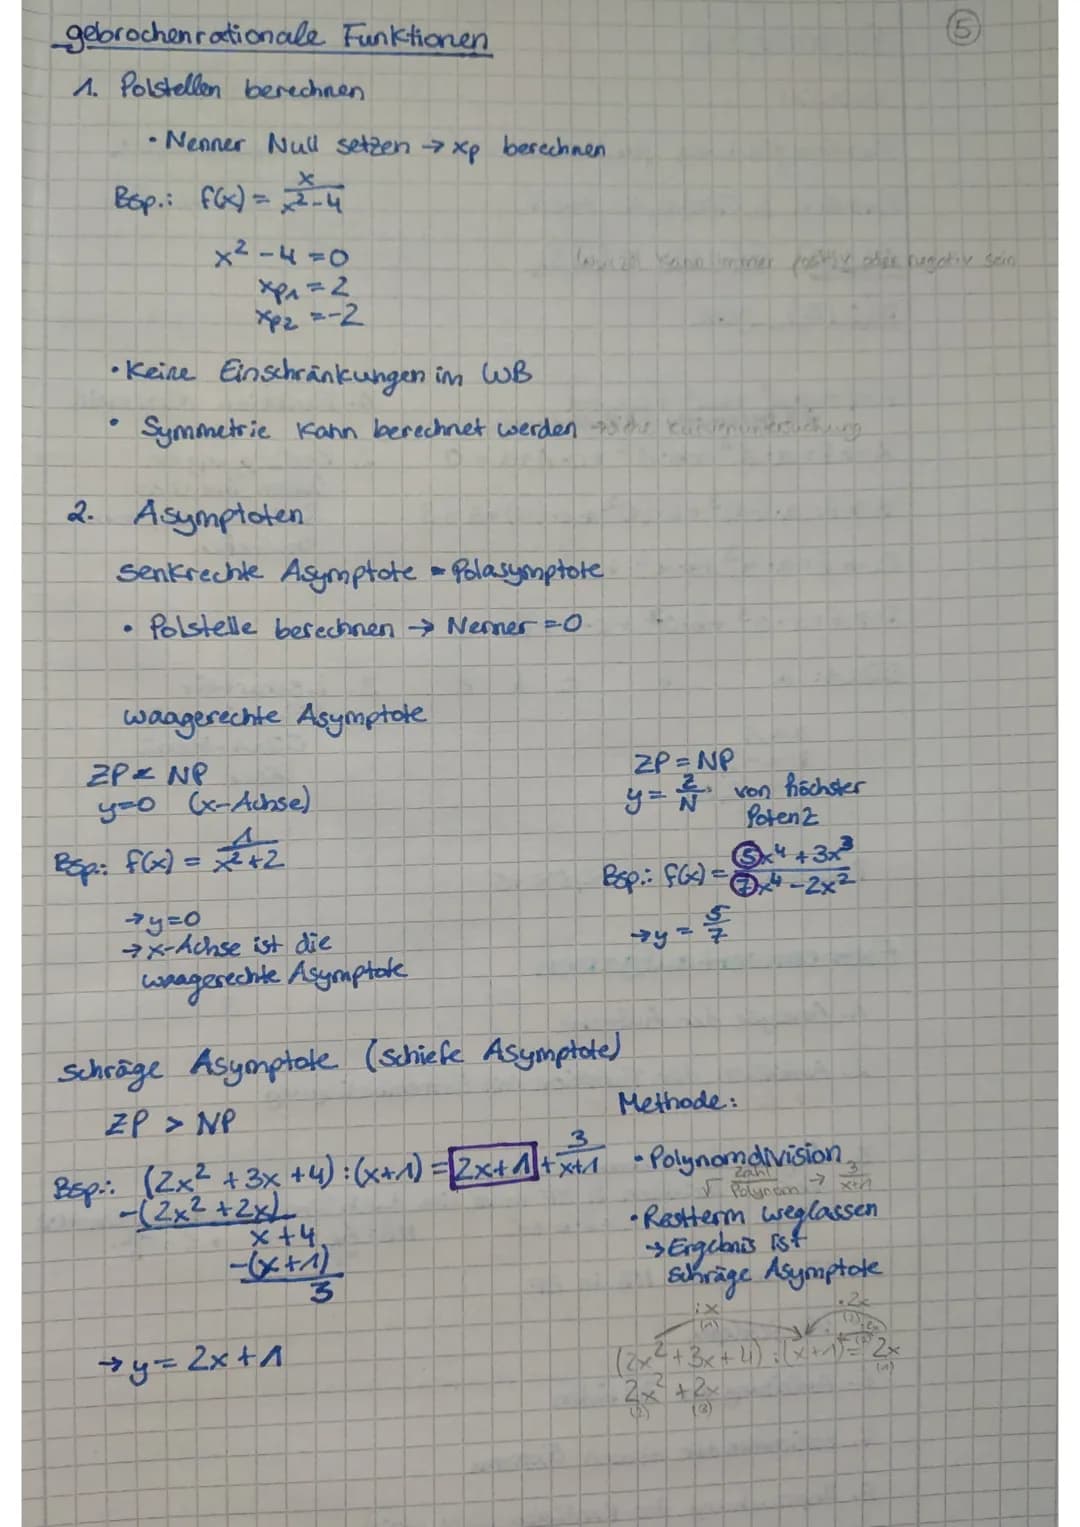 gebrochenrationale Funktionen
5
1. Polstellen berechnen
• Nenner Null setzen → xp berechnen
Bsp.: f(x) = x/(x²-4)
x² - 4 = 0
xp1 = 2
xp2 = -2
Wurzel kann immer positiv oder negativ sein
• Keine Einschränkungen im WB
• Symmetrie kann berechnet werden → siehe Kurvenuntersuchung
2. Asymptoten
senkrechte Asymptote = Polasymptote
• Polstelle berechnen → Nenner = 0
waagerechte Asymptote
ZP < NP
y=0 (x-Achse)
Bsp.: f(x) = 1/(x²+2)
→ y=0
→ x-Achse ist die
waagerechte Asymptote
ZP = NP
y = Z/N von höchster
Potenz
Bsp.: f(x) = (5x⁴ + 3x³)/(7x⁴ - 2x²)
→ y = 5/7
schräge Asymptote (schiefe Asymptote)
ZP > NP
Bsp.: (2x² + 3x + 4) : (x+1) = 2x+1 + 3/(x+1)
-(2x² + 2x)
x + 4
-(x+1)
3
→ y = 2x + 1
Methode:
• Polynomdivision
√ Zahl/Polynom → 3/(x+1)
• Restterm weglassen
→ Ergebnis ist
schräge Asymptote
:x
(1)
·2x
(2x² + 3x + 4) : (x+1) = 2x
(1)
2x² + 2x
(2) (3)